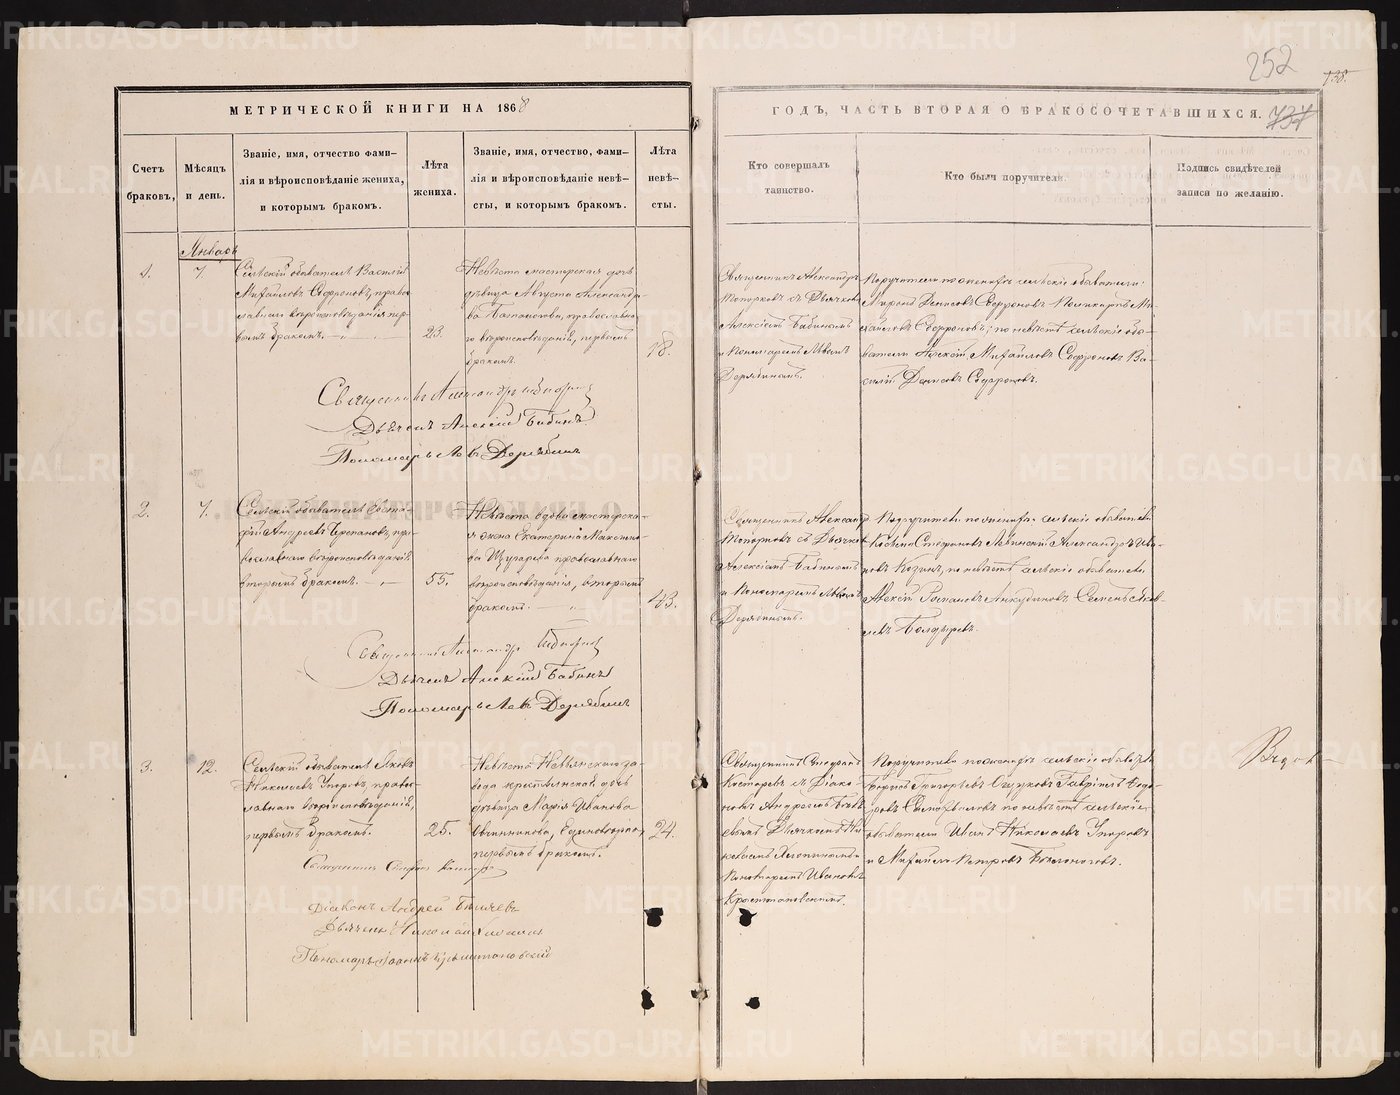 METRIKI.GASO-URAL.RU
252
138.
МЕТРИЧЕСКОЙ КНИГИ НА 1868
ГОДЪ, ЧАСТЬ ВТОРАЯ О БРАКОСОЧЕТАВШИХСЯ.
737
Счетъ
браковъ,
Мѣсяцъ
и день.
Званіе, имя, отчество фами-
лія и вѣроисповѣданіе жениха,
и которымъ бракомъ.
Лѣта
жениха.
Званіе, имя, отчество, фами-
лія и вѣроисповѣданіе невѣ-
сты, и которымъ бракомъ.
Лѣта
невѣ-
сты.
Кто совершалъ
таинство.
Кто были поручители.
Подпись свидѣтелей
записи по желанію.
Январь
1.
7.
Сельскій обыватель Василій
Михайловъ Софроновъ, право-
славнаго вѣроисповѣданія пер-
вымъ бракомъ.
23
Невѣста мастерская дочь
дѣвица Августа Александро-
ва, православна-
го вѣроисповѣданія, первымъ
бракомъ.
18.
Священникъ Александръ
Топорковъ съ Дьячкомъ
Алексіемъ Бабинымъ
и Пономаремъ Львомъ
Дерябинымъ.
Поручители по женихѣ сельскіе обыватели
Миронъ Денисовъ Софроновъ Поликарпъ Ми-
хайловъ Софроновъ; по невѣстѣ сельскіе обы-
ватели Алексѣй Михайловъ Софроновъ Ва-
силій Денисовъ Софроновъ.
Священникъ Александръ
Дьячекъ Алексій Бабинъ
Пономарь Левъ Дерябинъ
2.
7.
Сельскій обыватель Евста-
фій Андреевъ Черепановъ, пра-
вославнаго вѣроисповѣданія,
вторымъ бракомъ.
55.
Невѣста вдова мастерска-
я жена Екатерина Максимо-
ва православнаго
вѣроисповѣданія, вторымъ
бракомъ.
43.
Священникъ Александръ
Топорковъ съ Дьячкомъ
Алексіемъ Бабинымъ
и Пономаремъ Львомъ
Дерябинымъ.
Поручители по женихѣ сельскіе обыватели
Косьма Стефановъ Александръ Ива-
новъ Козинъ, по невѣстѣ сельскіе обыватели
Алексѣй Анкудиновъ Семенъ Яков-
левъ Болдыревъ.
Священникъ Александръ
Дьячекъ Алексій Бабинъ
Пономарь Левъ Дерябинъ
3.
12.
Сельскій обыватель Яковъ
Николаевъ Упоровъ, право-
славнаго вѣроисповѣданія,
первымъ бракомъ.
25.
Невѣста Невьянскаго за-
вода крестьянская дочь
дѣвица Марія Иванова
Овчинникова, Единовѣрка,
первымъ бракомъ.
24.
Священникъ Стефанъ
Костаревъ съ Діако-
номъ Андреемъ Бѣля-
евымъ Дьячкомъ Ни-
колаемъ
Пономаремъ Иваномъ
Поручители по женихѣ сельскіе обыватели
Григорьевъ Гавріилъ Ѳедо-
ровъ по невѣстѣ сельскіе
обыватели Иванъ Николаевъ Упоровъ
и Михаилъ Петровъ Бѣлоноговъ.
Священникъ Стефанъ Костаревъ
Діаконъ Андрей Бѣляевъ
Дьячекъ Николай
Пономарь Іоаннъ